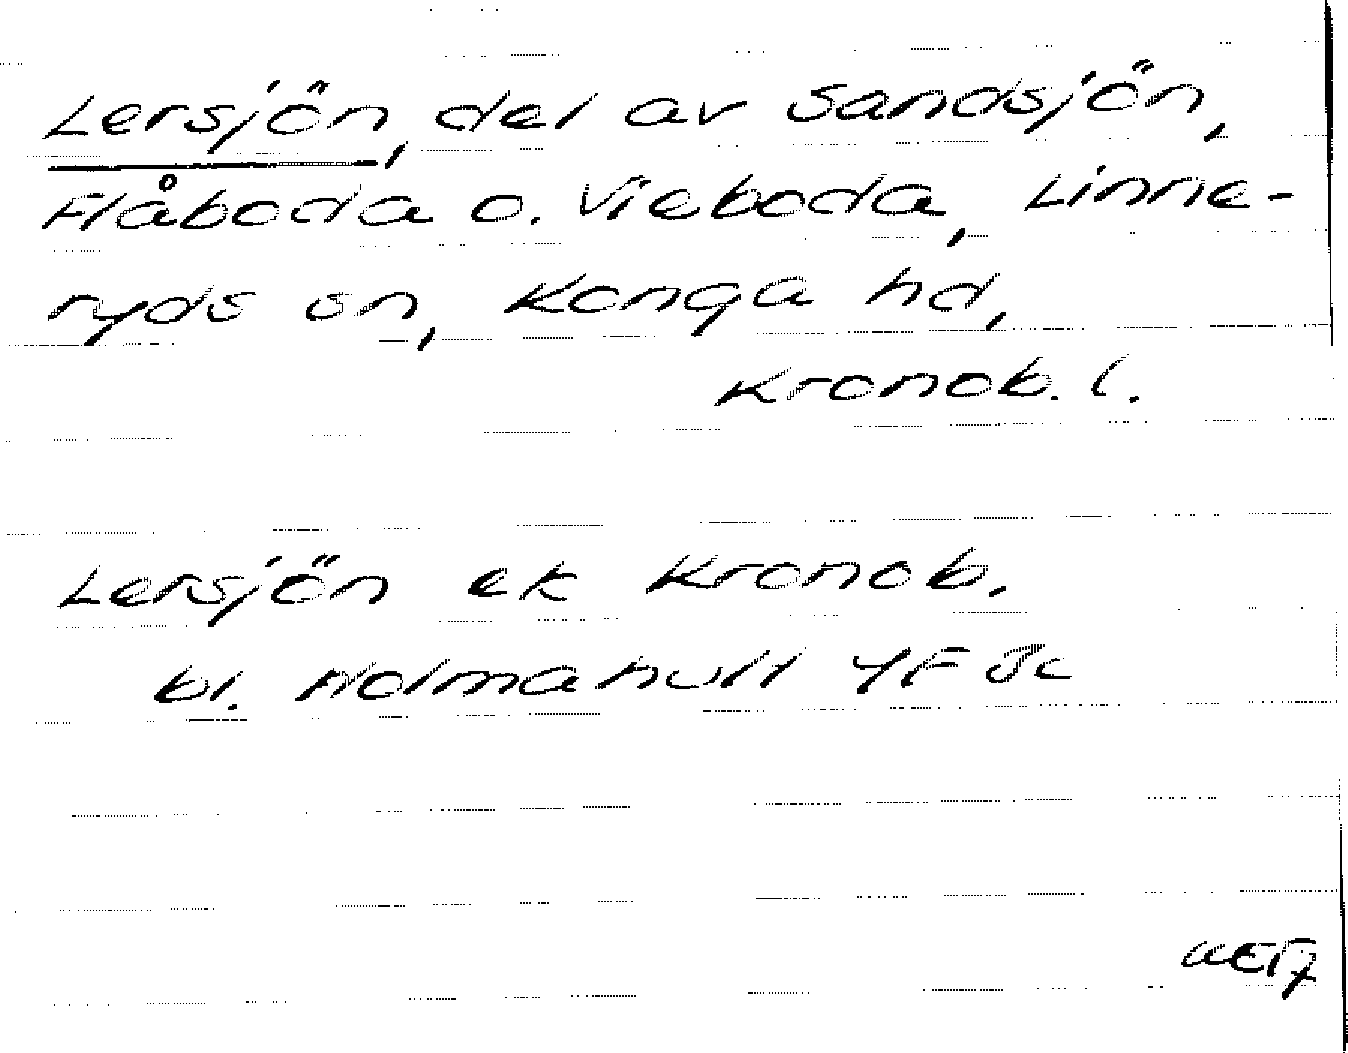 Lersjön, del av Sandsjön,
Flåboda o. Vieboda, Linne-
ryds sn, Konga hd,
Kronob. l.
Lersjön ek Kronob.
bl. Holmahult 4F Jc